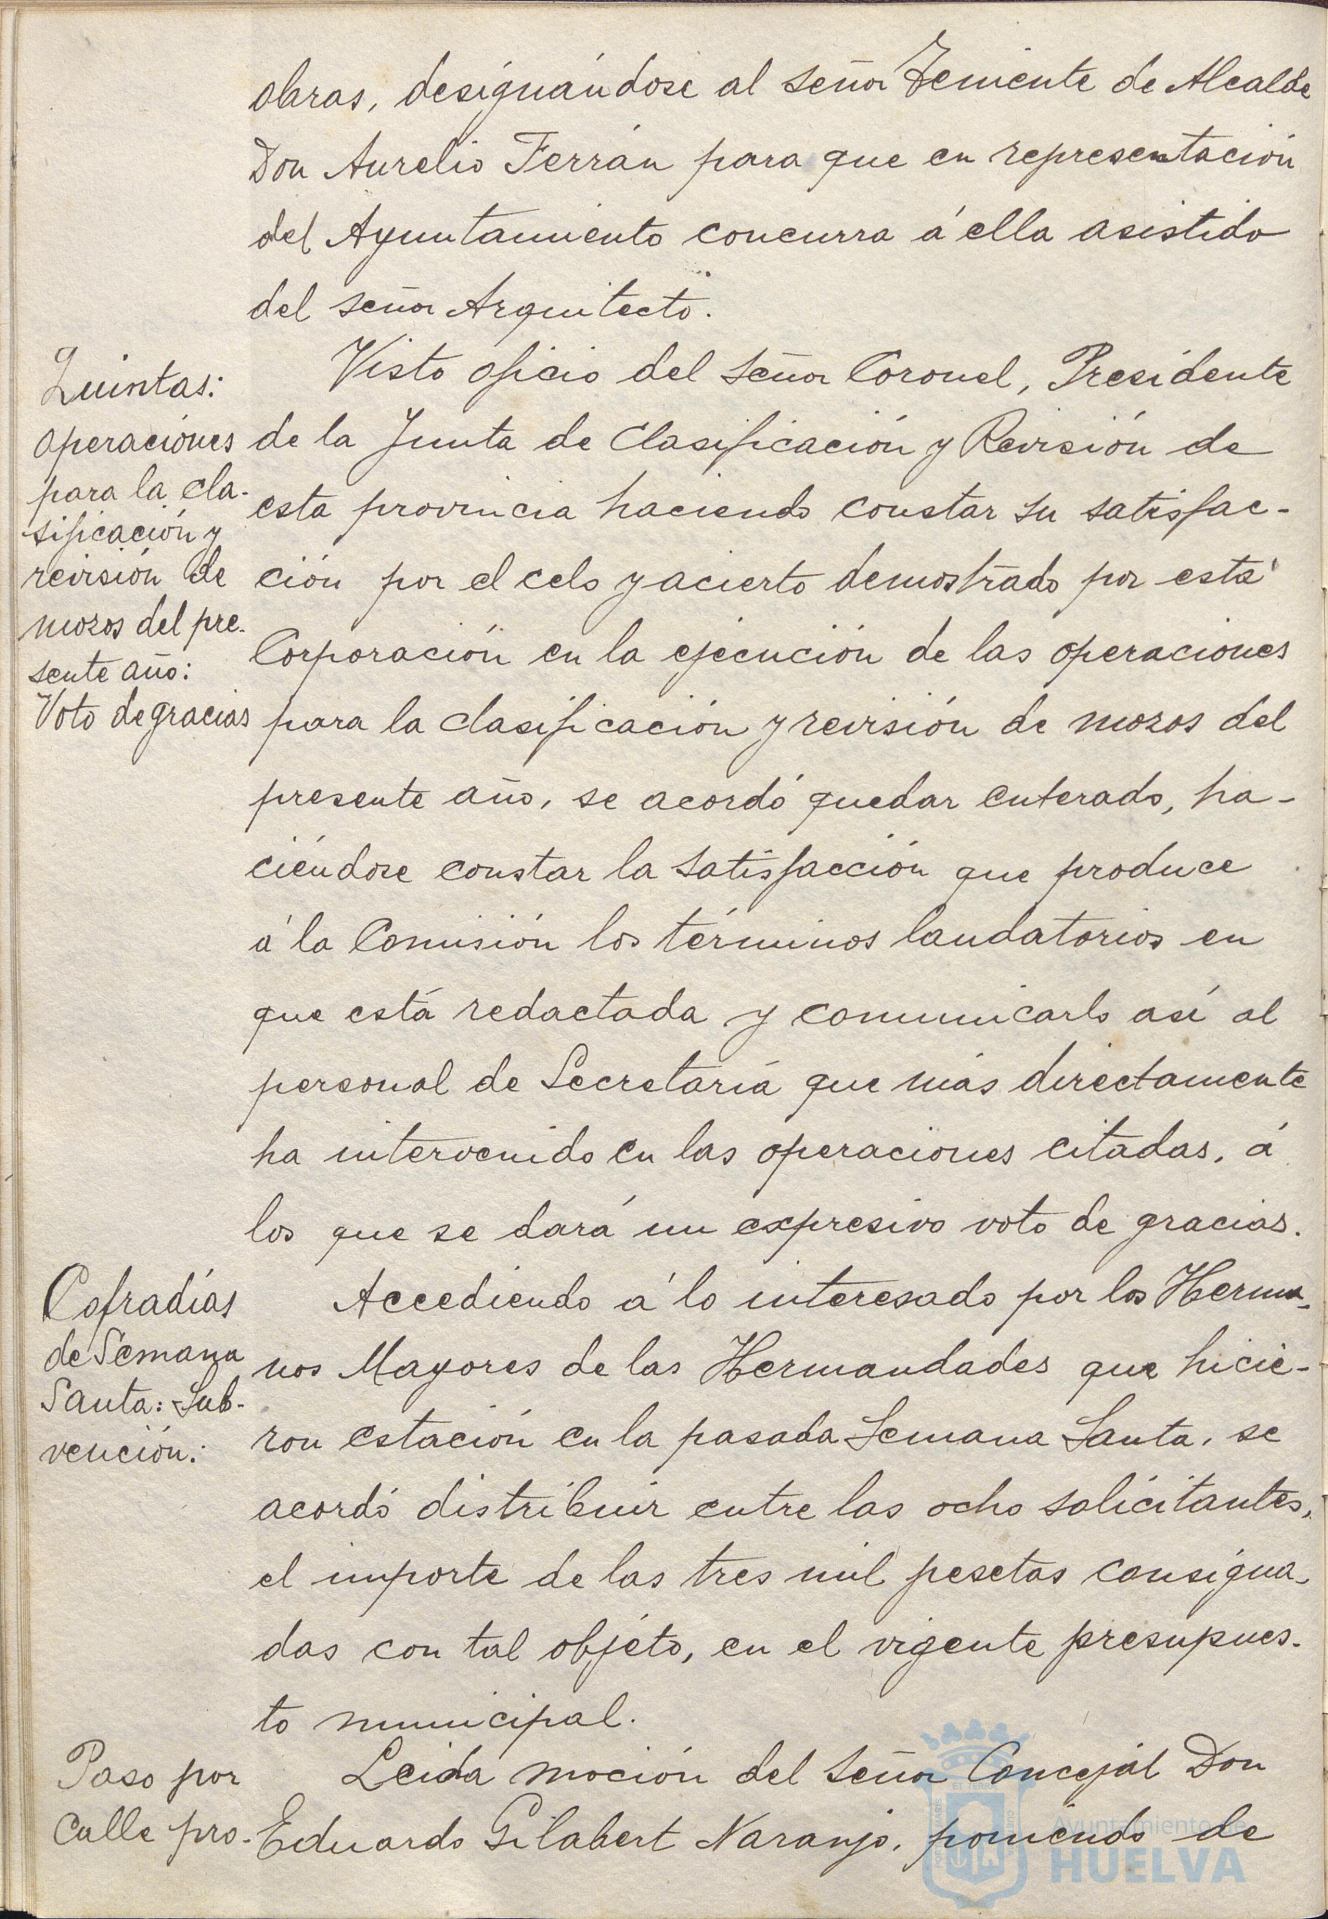 obras, designándose al señor Teniente de Alcalde
Don Aurelio Ferrán para que en representación
del Ayuntamiento concurra á ella asistido
del señor Arquitecto.
Quintas:
operaciones
para la cla-
sificación y
revisión de
mozos del pre-
sente año:
Voto de gracias
Visto oficio del señor Coronel, Presidente
de la Junta de Clasificación y Revisión de
esta provincia haciendo constar su satisfac-
ción por el celo y acierto demostrado por esta
Corporación en la ejecución de las operaciones
para la clasificación y revisión de mozos del
presente año, se acordó quedar enterado, ha-
ciéndose constar la satisfacción que produce
á la Comisión los términos laudatorios en
que está redactada y comunicarlo así al
personal de Secretaría que más directamente
ha intervenido en las operaciones citadas, á
los que se dará un expresivo voto de gracias.
Cofradías
de Semana
Santa: Sub-
vención:
Accediendo á lo interesado por los Herma-
nos Mayores de las Hermandades que hicie-
ron estación en la pasada Semana Santa, se
acordó distribuir entre las ocho solicitantes,
el importe de las tres mil pesetas consigna-
das con tal objéto, en el vigente presupues-
to municipal.
Paso por
calle pro-
Leida moción del señor Concejal Don
Eduardo Gilabert Naranjo, poniendo de
Ayuntamiento de
HUELVA